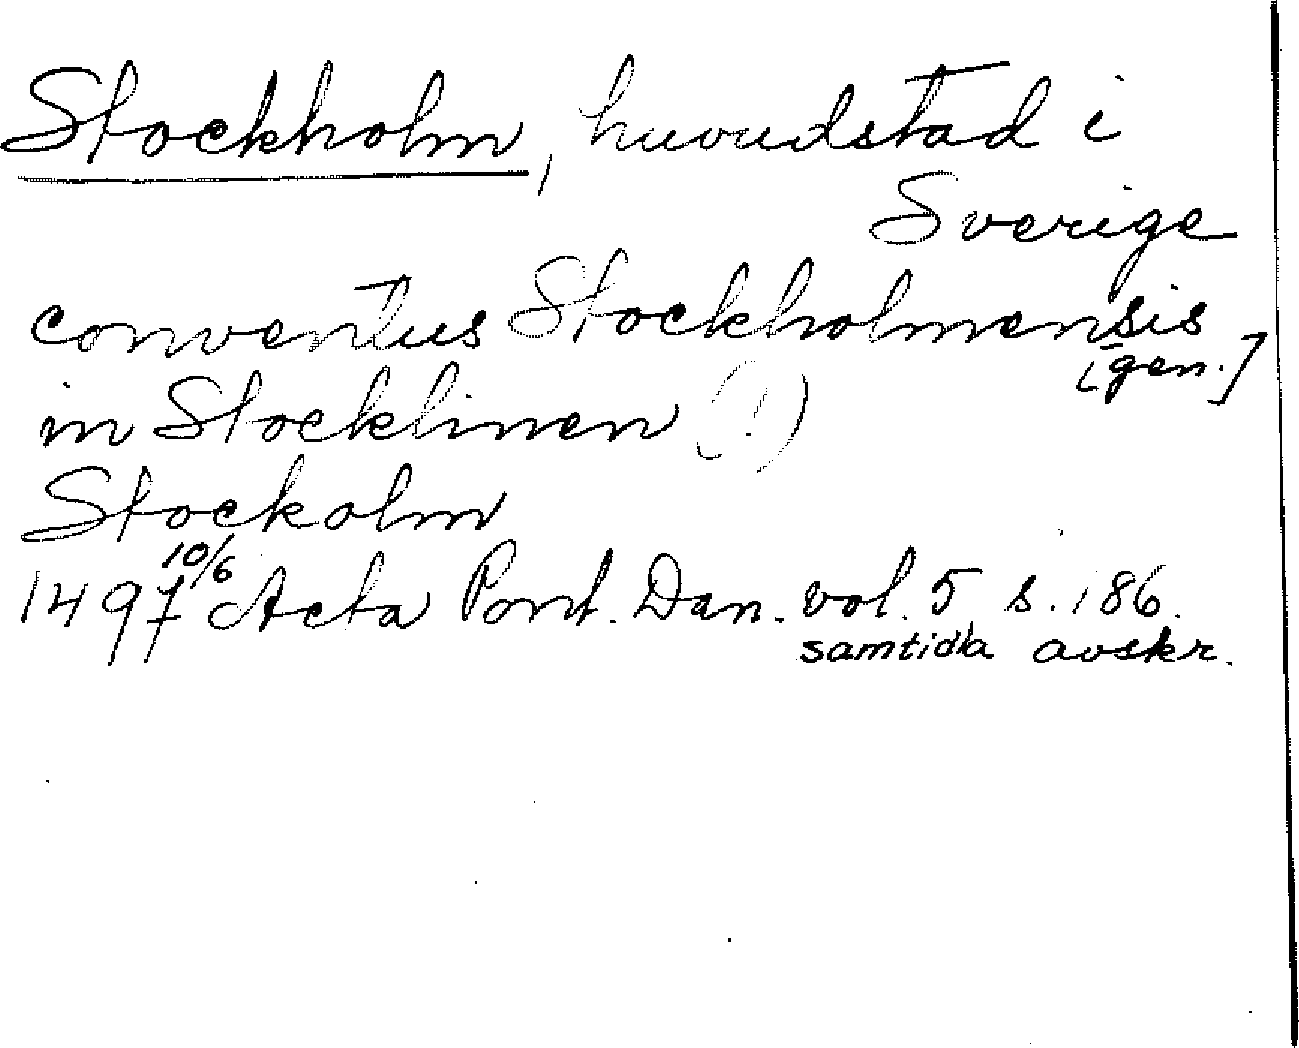 Stockholm, huvudstad i
Sverige
conventus Stockholmensis
[gen.]
in Stocklinen (!)
Stockolm
1497 10/6 Acta Pont. Dan. vol. 5 s. 186.
samtida avskr.